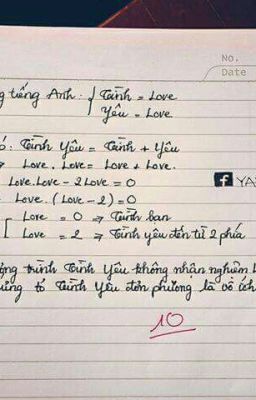 No.
Date
g tiếng Anh: { Tình = Love
Yêu = Love
ó: Tình Yêu = Tình + Yêu
Love . Love = Love + Love.
Love.Love - 2Love = 0
Love. (Love - 2) = 0
[ Love = 0 => Tình bạn
Love = 2 => Tình yêu đến từ 2 phía
trình Tình Yêu không nhận nghiệm
tỏ Tình Yêu đơn phương là vô ích
10
YA